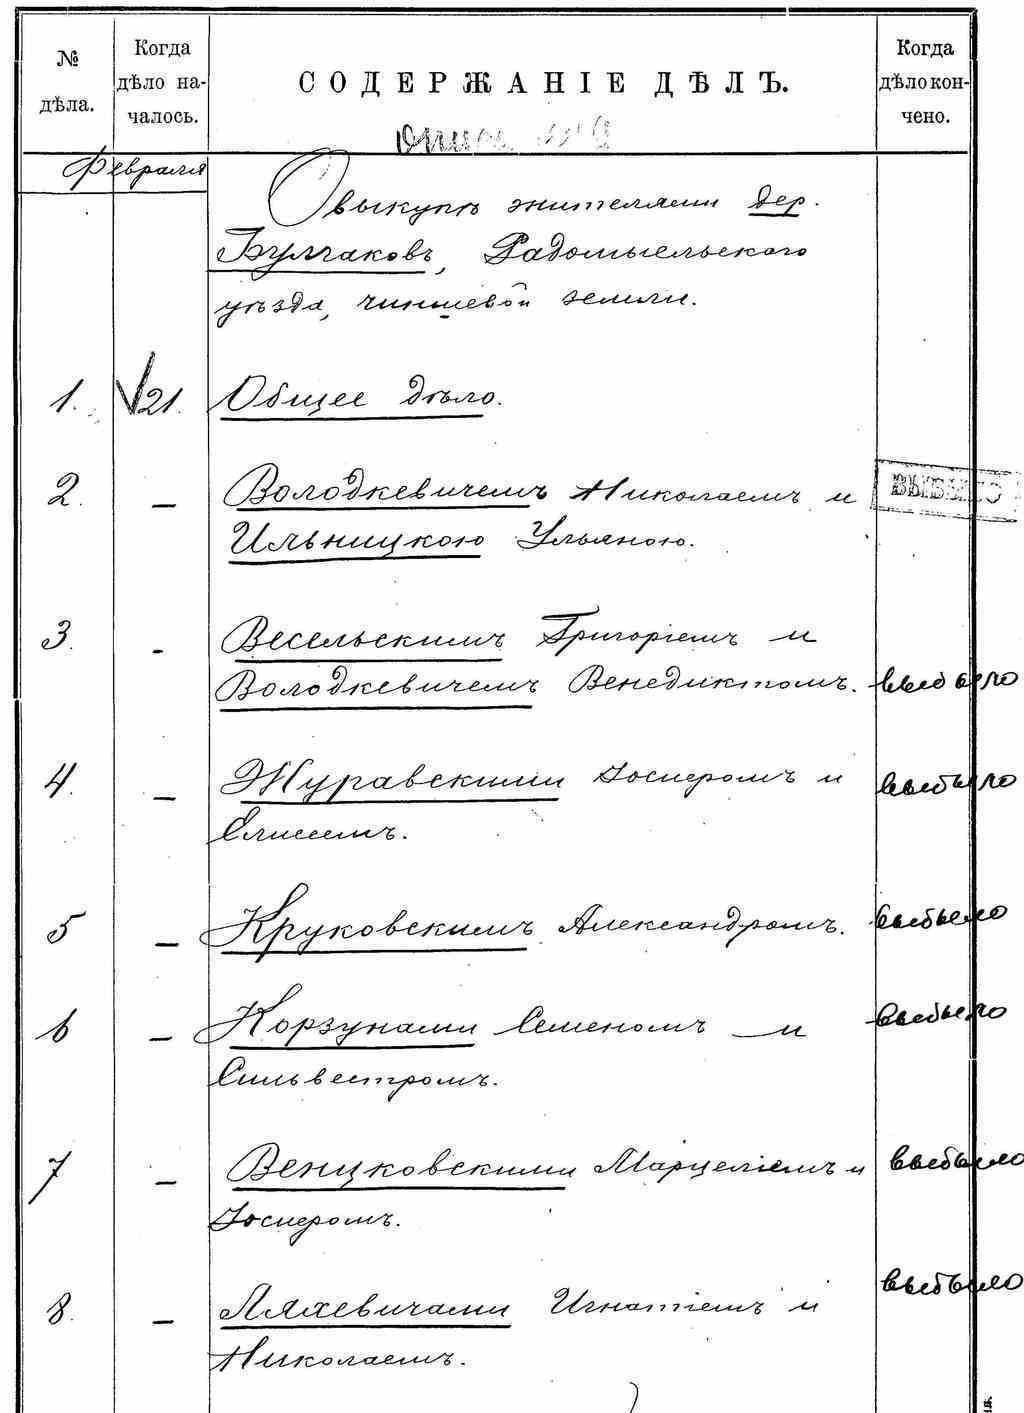 № дѣла.
Когда дѣло на-
чалось.
СОДЕРЖАНІЕ ДѢЛЪ.
Когда дѣло кон-
чено.
Февраля
О выкупѣ жителями дер.
Булгаковъ, Радомысльского
уѣзда, чиншевой земли.
1. 21. Общее дѣло.
2. — Володкевичемъ Николаемъ и
ВЫБЫЛО
Ильницкою Ульяною.
3. - Весельскимъ Григоріемъ и
Володкевичемъ Венедиктомъ. выбыло
4. — Журавскими Іосифомъ и выбыло
Елисеемъ.
5 — Круковскимъ Александромъ. выбыло
6 — Корзунами Семеномъ и выбыло
Сильвестромъ.
7 — Венцковскими Марцеліемъ и выбыло
Іосифомъ.
8. — Ляхевичами Игнатіемъ и выбыло
Николаемъ.